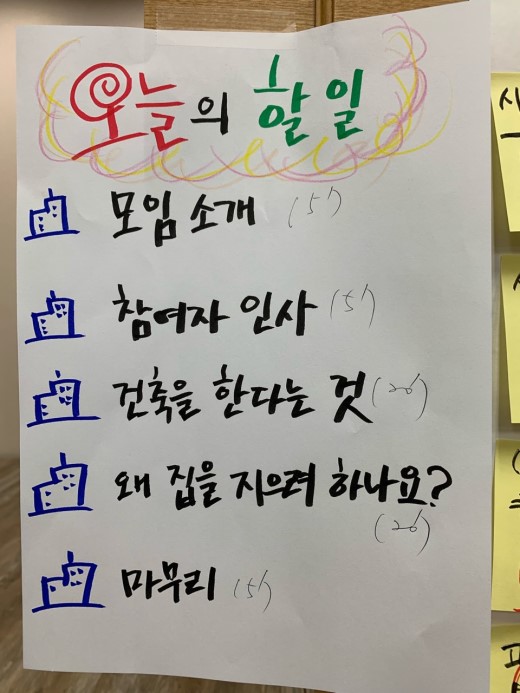 오늘의 할 일
모임 소개 (5')
참여자 인사 (5')
건축을 한다는 것 (20')
왜 집을 지으려 하나요?
(20')
마무리 (5')